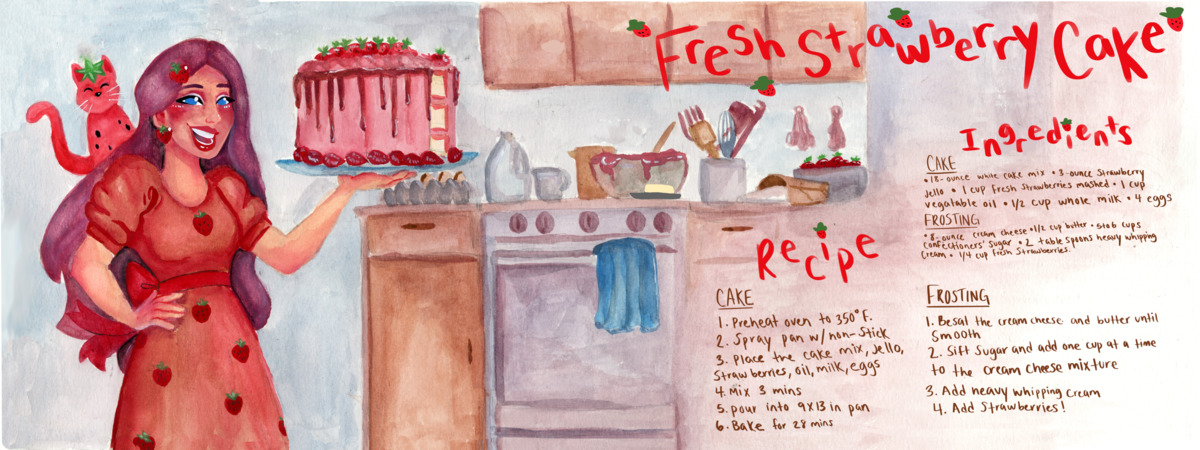 Fresh Strawberry Cake
Ingredients
CAKE
• 18-ounce white cake mix • 3-ounce Strawberry
Jello • 1 cup fresh Strawberries mashed • 1 cup
vegatable oil • 1/2 cup whole milk • 4 eggs
FROSTING
• 8-ounce cream cheese • 1/2 cup butter • 5to6 cups
Confectioners' Sugar • 2 table spoons heavy whipping
Cream • 1/4 cup fresh Strawberries.
Recipe
CAKE
1. Preheat oven to 350°F.
2. Spray pan w/non-Stick
3. Place the cake mix, Jello,
Strawberries, oil, milk, eggs
4. Mix 3 mins
5. pour into 9X13 in pan
6. Bake for 28 mins
FROSTING
1. Besal the cream cheese and butter until
Smooth
2. Sift Sugar and add one cup at a time
to the cream cheese mixture
3. Add heavy whipping Cream
4. Add Strawberries!